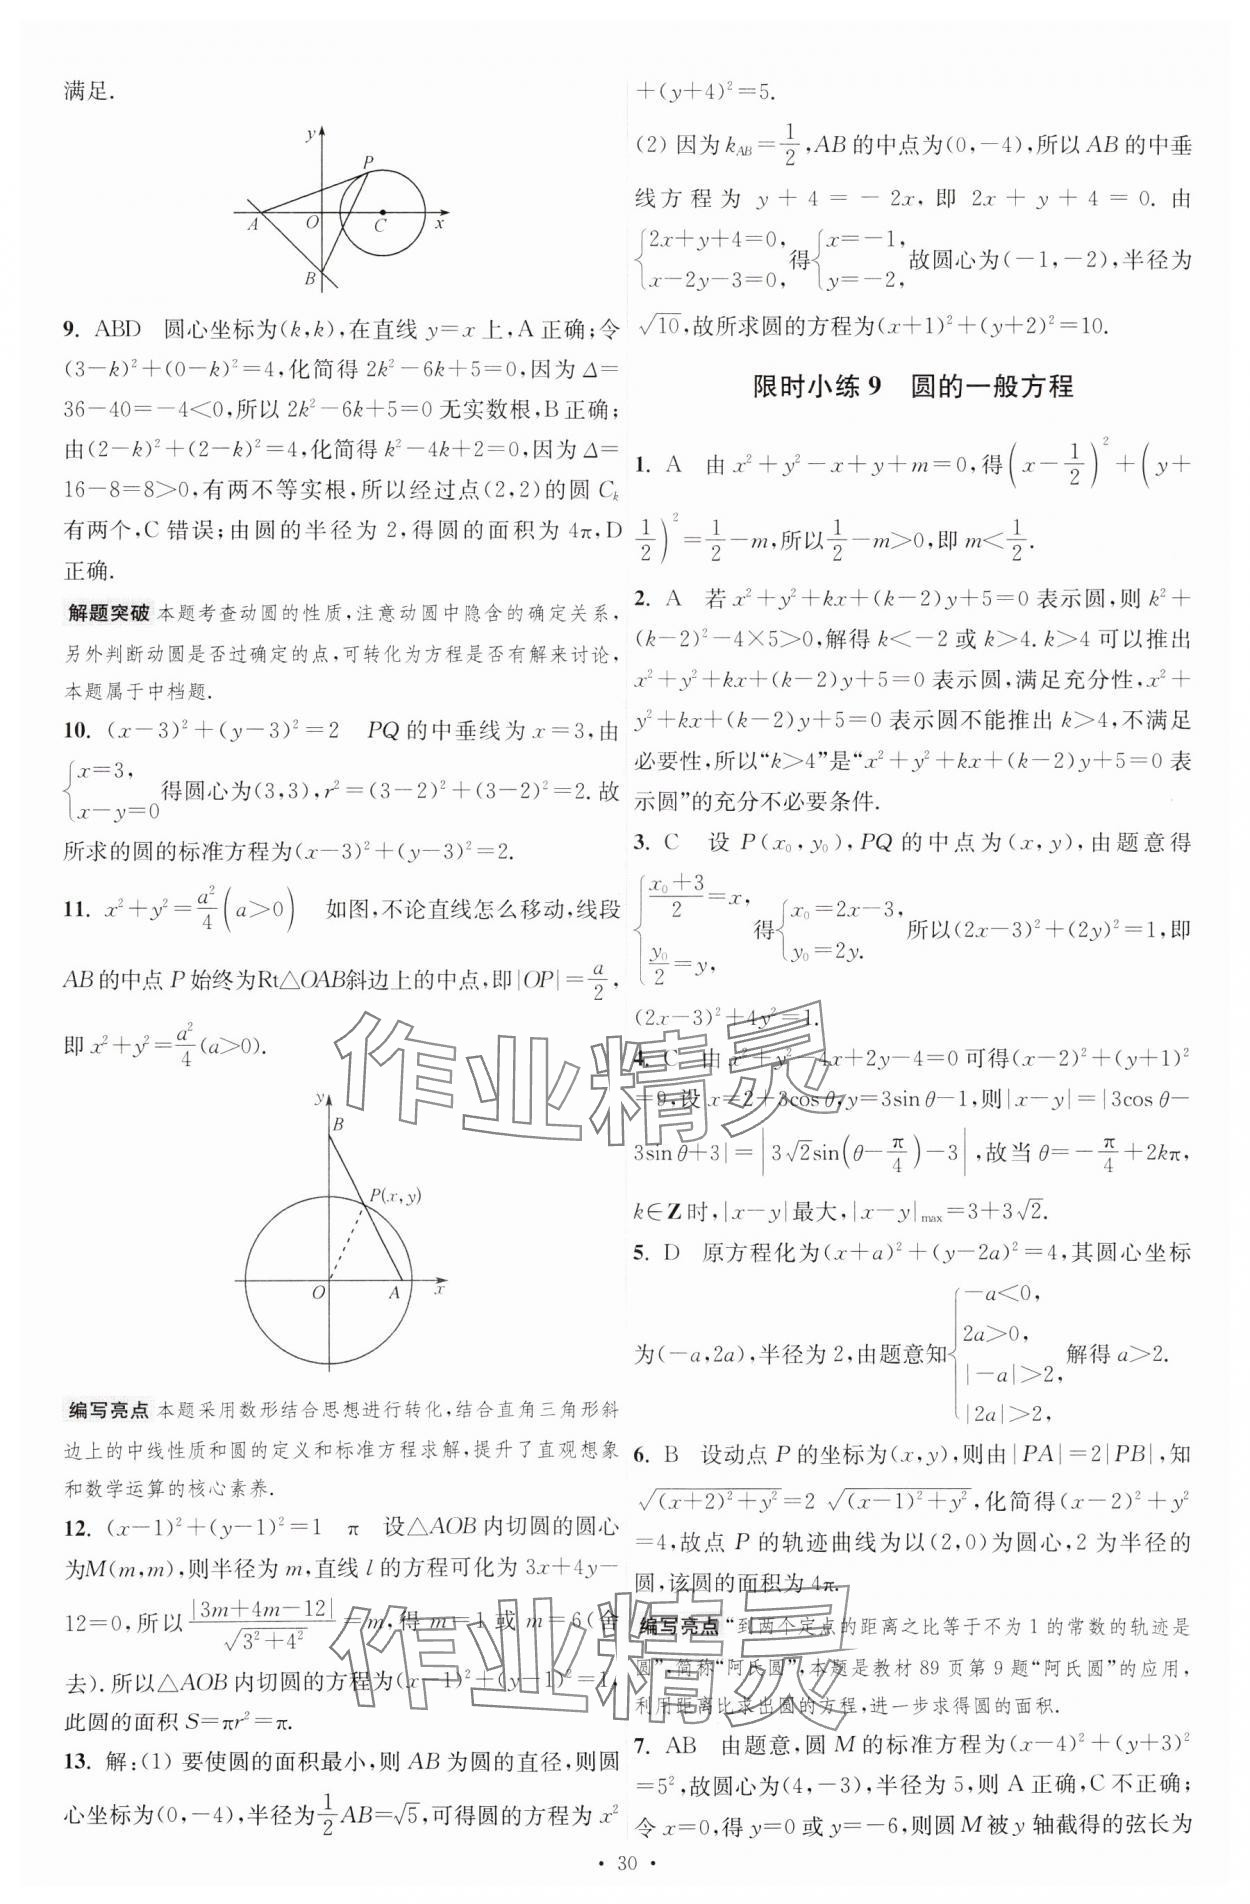 满足.
y
P
A
O
C
x
B
9. ABD 圆心坐标为(k,k),在直线 y=x 上,A 正确;令
(3−k)²+(0−k)²=4,化简得 2k²−6k+5=0,因为 Δ=
36−40=−4<0,所以 2k²−6k+5=0 无实数根,B正确;
由(2−k)²+(2−k)²=4,化简得 k²−4k+2=0,因为 Δ=
16−8=8>0,有两不等实根,所以经过点(2,2)的圆 Cₖ
有两个,C 错误;由圆的半径为 2,得圆的面积为 4π,D
正确.
解题突破 本题考查动圆的性质,注意动圆中隐含的确定关系,
另外判断动圆是否过确定的点,可转化为方程是否有解来讨论,
本题属于中档题.
10. (x−3)²+(y−3)²=2 PQ 的中垂线为 x=3,由
{x=3, x−y=0 得圆心为(3,3),r²=(3−2)²+(3−2)²=2.故
所求的圆的标准方程为(x−3)²+(y−3)²=2.
11. x²+y²=a²/4(a>0) 如图,不论直线怎么移动,线段
AB的中点 P 始终为Rt△OAB斜边上的中点,即|OP|=a/2,
即 x²+y²=a²/4(a>0).
y
B
P(x,y)
O
A
x
编写亮点 本题采用数形结合思想进行转化,结合直角三角形斜
边上的中线性质和圆的定义和标准方程求解,提升了直观想象
和数学运算的核心素养.
12. (x−1)²+(y−1)²=1 π 设△AOB内切圆的圆心
为M(m,m),则半径为 m,直线 l 的方程可化为 3x+4y−
12=0,所以 |3m+4m−12|/√(3²+4²)=m,得 m=1 或 m=6(舍
去).所以△AOB内切圆的方程为(x−1)²+(y−1)²=1,
此圆的面积 S=πr²=π.
13. 解:(1) 要使圆的面积最小,则 AB 为圆的直径,则圆
心坐标为(0,−4),半径为1/2AB=√5,可得圆的方程为 x²
+(y+4)²=5.
(2) 因为 k_AB=1/2,AB的中点为(0,−4),所以 AB的中垂
线方程为 y+4=−2x,即 2x+y+4=0.由
{2x+y+4=0, x−2y−3=0, 得{x=−1, y=−2, 故圆心为(−1,−2),半径为
√10,故所求圆的方程为(x+1)²+(y+2)²=10.
限时小练9 圆的一般方程
1. A 由 x²+y²−x+y+m=0,得(x−1/2)²+(y+
1/2)²=1/2−m,所以1/2−m>0,即 m<1/2.
2. A 若 x²+y²+kx+(k−2)y+5=0 表示圆,则 k²+
(k−2)²−4×5>0,解得 k<−2 或 k>4.k>4 可以推出
x²+y²+kx+(k−2)y+5=0 表示圆,满足充分性,x²+
y²+kx+(k−2)y+5=0 表示圆不能推出 k>4,不满足
必要性,所以“k>4”是“x²+y²+kx+(k−2)y+5=0 表
示圆”的充分不必要条件.
3. C 设 P(x₀,y₀),PQ 的中点为(x,y),由题意得
{(x₀+3)/2=x, y₀/2=y, 得{x₀=2x−3, y₀=2y. 所以(2x−3)²+(2y)²=1,即
(2x−3)²+4y²=1.
4. C 由 x²+y²−4x+2y−4=0 可得(x−2)²+(y+1)²
=9,设 x=2+3cos θ,y=3sin θ−1,则|x−y|=|3cos θ−
3sin θ+3|=|3√2sin(θ−π/4)−3|,故当 θ=−π/4+2kπ,
k∈Z时,|x−y|最大,|x−y|max=3+3√2.
5. D 原方程化为(x+a)²+(y−2a)²=4,其圆心坐标
为(−a,2a),半径为 2,由题意知{−a<0, 2a>0, |−a|>2, |2a|>2, 解得 a>2.
6. B 设动点 P 的坐标为(x,y),则由|PA|=2|PB|,知
√((x+2)²+y²)=2 √((x−1)²+y²),化简得(x−2)²+y²
=4,故点 P 的轨迹曲线为以(2,0)为圆心,2 为半径的
圆,该圆的面积为 4π.
编写亮点 “到两个定点的距离之比等于不为 1 的常数的轨迹是
圆”,简称“阿氏圆”,本题是教材 89 页第 9 题“阿氏圆”的应用,
利用距离比求出圆的方程,进一步求得圆的面积.
7. AB 由题意,圆 M 的标准方程为(x−4)²+(y+3)²
=5²,故圆心为(4,−3),半径为 5,则 A 正确,C 不正确;
令 x=0,得 y=0 或 y=−6,则圆 M 被 y 轴截得的弦长为
· 30 ·
作业精灵
作业精灵